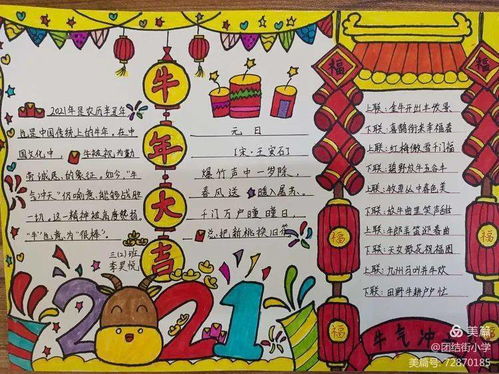 牛年大吉
2021年是农历辛丑年
也是中国传统上的牛年，在中
国文化中，牛被视为勤
的象征。如今，"牛
气冲天"仍响亮，能够战胜
一切。这一精神被高度赞扬
"牛"也意为"很棒"。
三(2)班
2021
元日
[宋·王安石]
爆竹声中一岁除，
春风送暖入屠苏。
千门万户曈曈日，
总把新桃换旧符
福
福
福
福
上联：金牛开出丰收景
下联：喜鹊衔来幸福春
上联：红梅傲雪千门福
下联：碧野放牛五谷丰
上联：牧草从中春色美
下联：放牛曲里笑声甜
上联：牛郎弄笛迎春曲
下联：天女散花祝福图
上联：九州日叫牛年欢
下联：田野牛耕户户忙
牛气冲
美篇
@团结街小学
美篇号：72870185